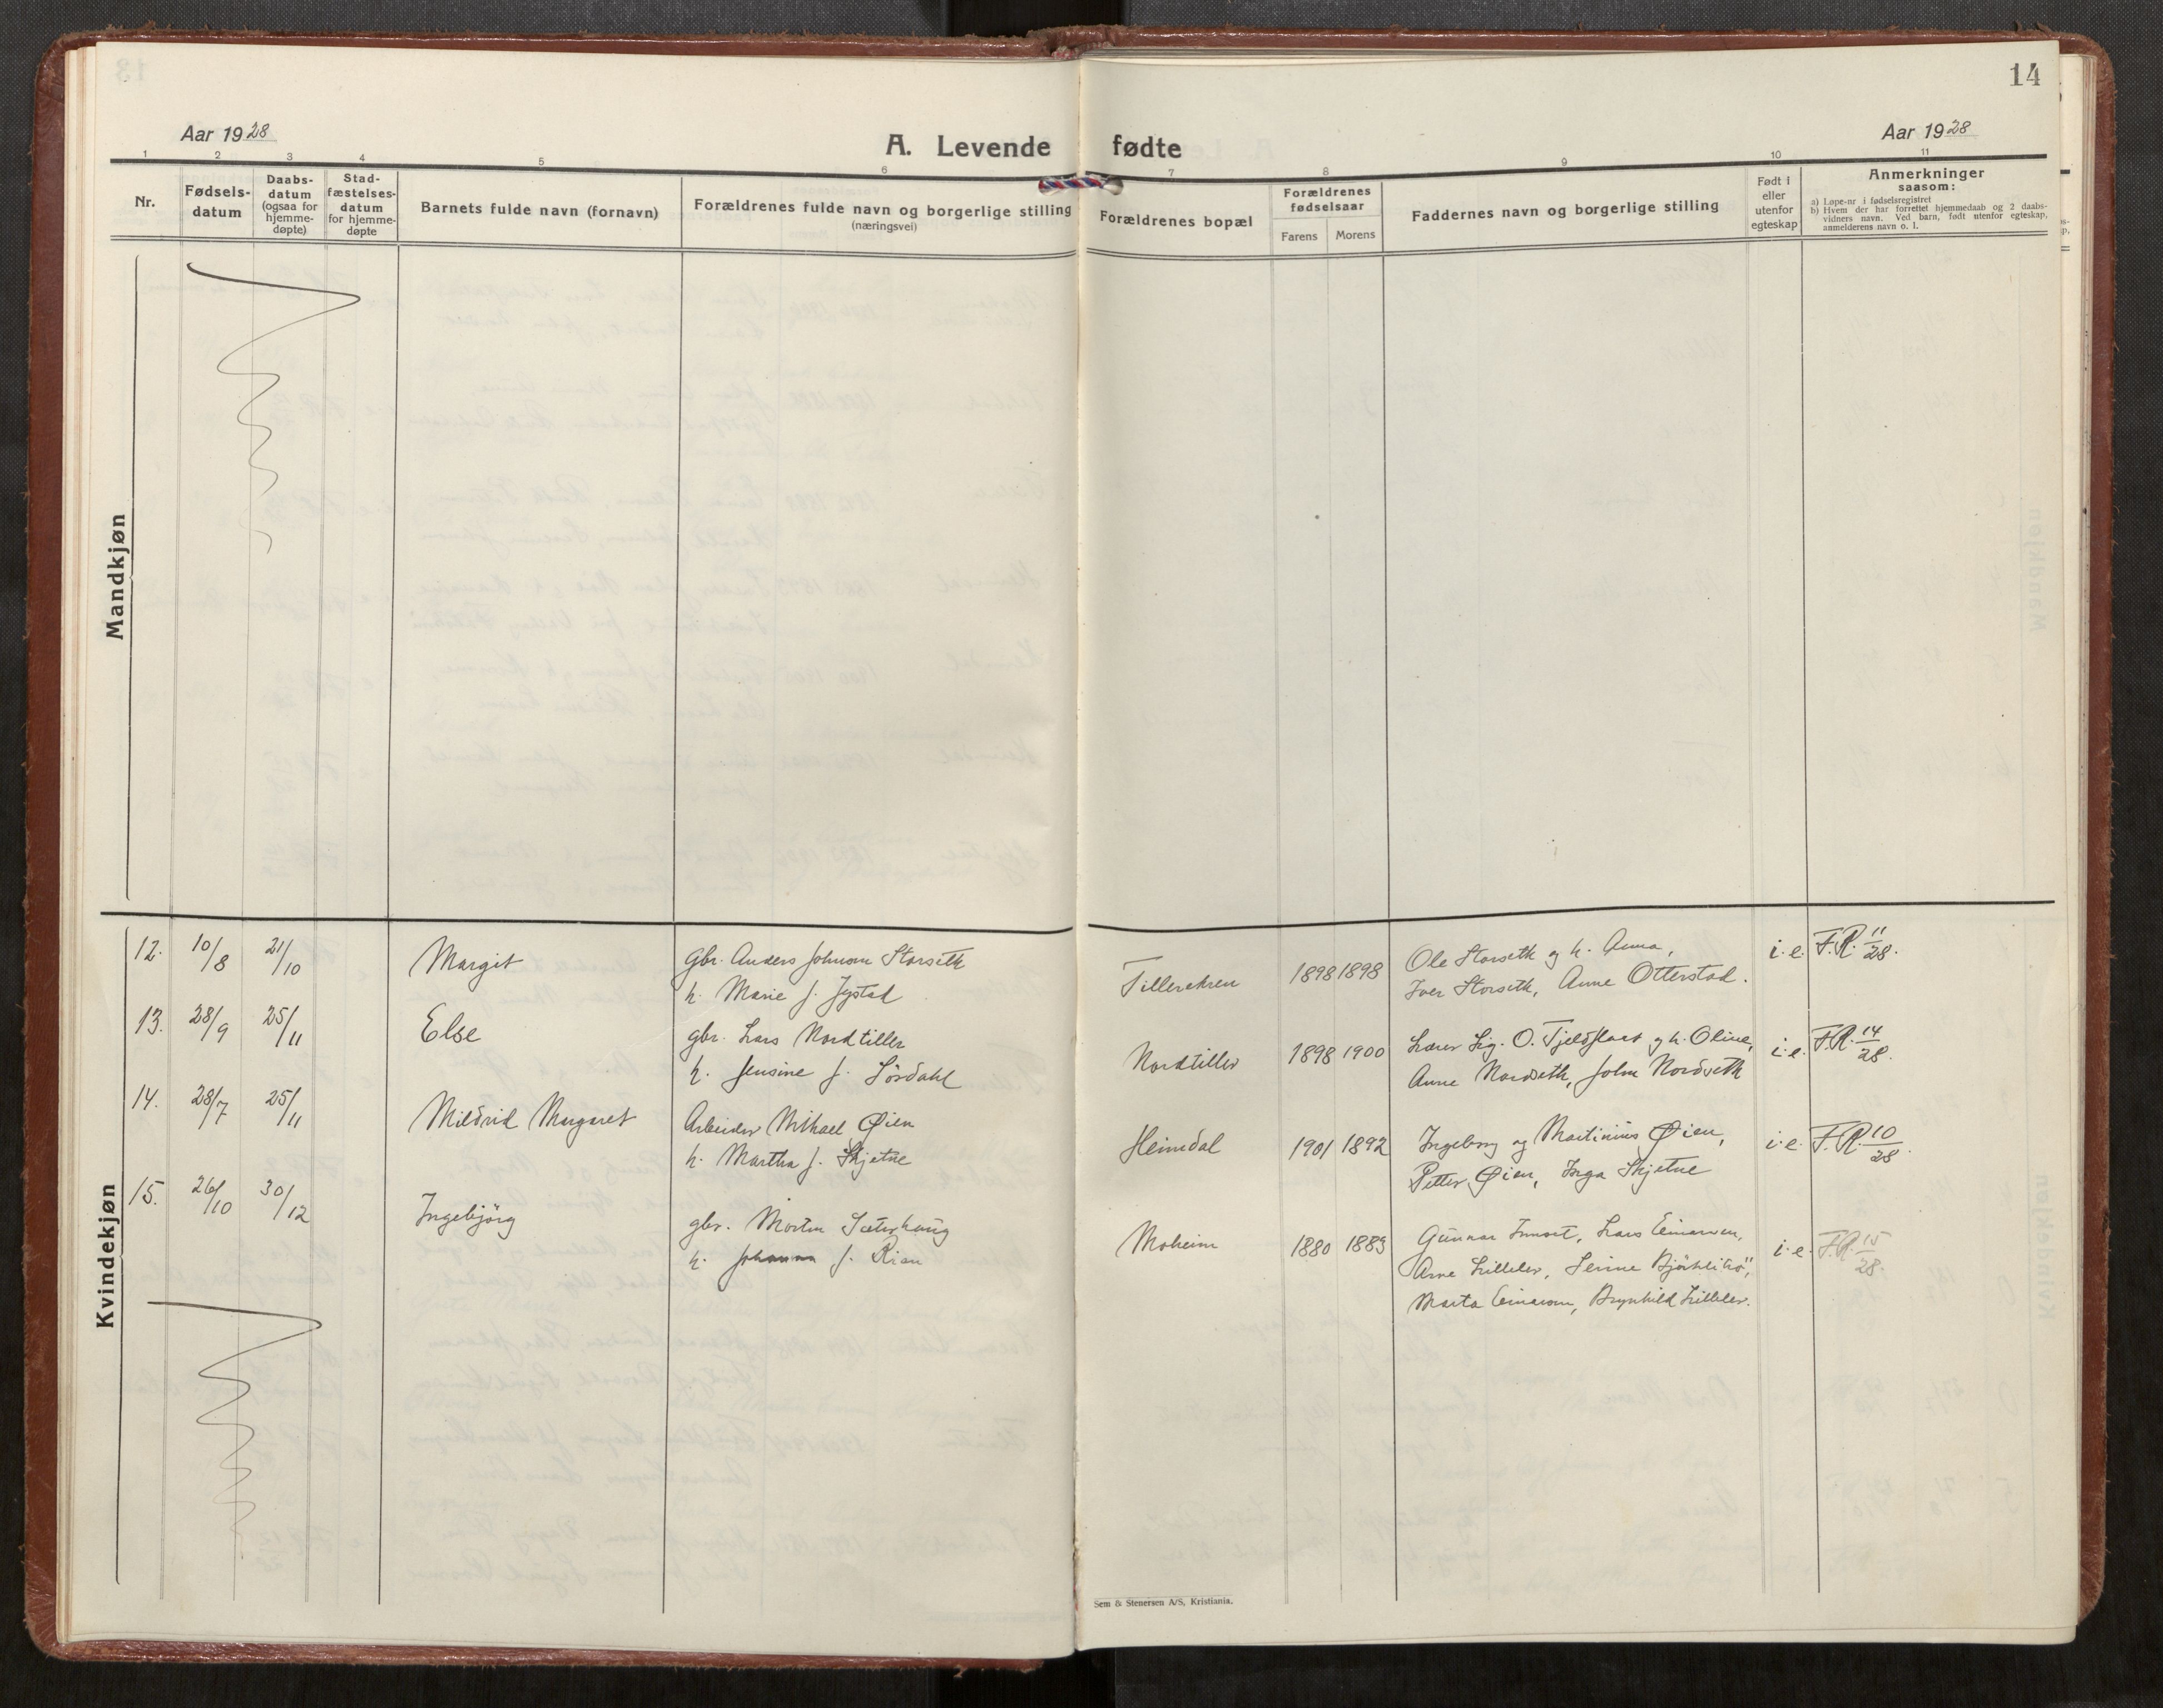 14
Aar 1928
A. Levende fødte
Aar 1928
1 2 3 4 5 6 7 8 9 10 11
Nr.
Fødsels-
datum
Daabs-
datum
(ogsaa for
hjemme-
døpte)
Stad-
fæstelses-
datum
for hjemme-
døpte
Barnets fulde navn (fornavn)
Forældrenes fulde navn og borgerlige stilling
(næringsvei)
Forældrenes bopæl
Forældrenes
fødselsaar
Farens Morens
Faddernes navn og borgerlige stilling
Født i
eller
utenfor
egteskap
Anmerkninger
saasom:
a) Løpe-nr i fødselsregistret
b) Hvem der har forrettet hjemmedaab og 2 daabs-
vidners navn. Ved barn, født utenfor egteskap,
anmelderens navn o. l.
Mandkjøn
Kvindekjøn
12. 10/8 21/10 Margit
Gbr. Anders Johnsen Storseth
h. Marie f.
Tillerekren 1898 1898
Ole Storseth og h. Anna,
Iver Storseth, Anne Otterstad.
i. e. F.R. 11/28.
13. 28/9 25/11 Else
gbr. Lars Nordtiller
h. Jensine f. Sørdahl
Nordtiller 1898 1900
Lærer Sig. O. Tjeldflaat og h. Oline,
Anne Nordseth, John Nordseth
i. e. F.R. 14/28.
14. 28/7 25/11 Mildrid Margaret
Arbeider Mikael Øien
h. Martha f. Skjetne
Heimdal 1901 1892
Ingeborg og Martinius Øien,
Petter Øien, Inga Skjetne
i. e. F.R. 10/28.
15. 26/10 30/12 Ingebjörg
gbr. Morten Sæterhaug
h. Johanna f. Rian
Moheim 1880 1883
Gunnar Innset, Lars Einarsen,
Arne Lillelev, Serine
Marta Einarsen, Brynhild Lillelev.
i. e. F.R. 15/28.
Sem & Stenersen A/S, Kristiania.